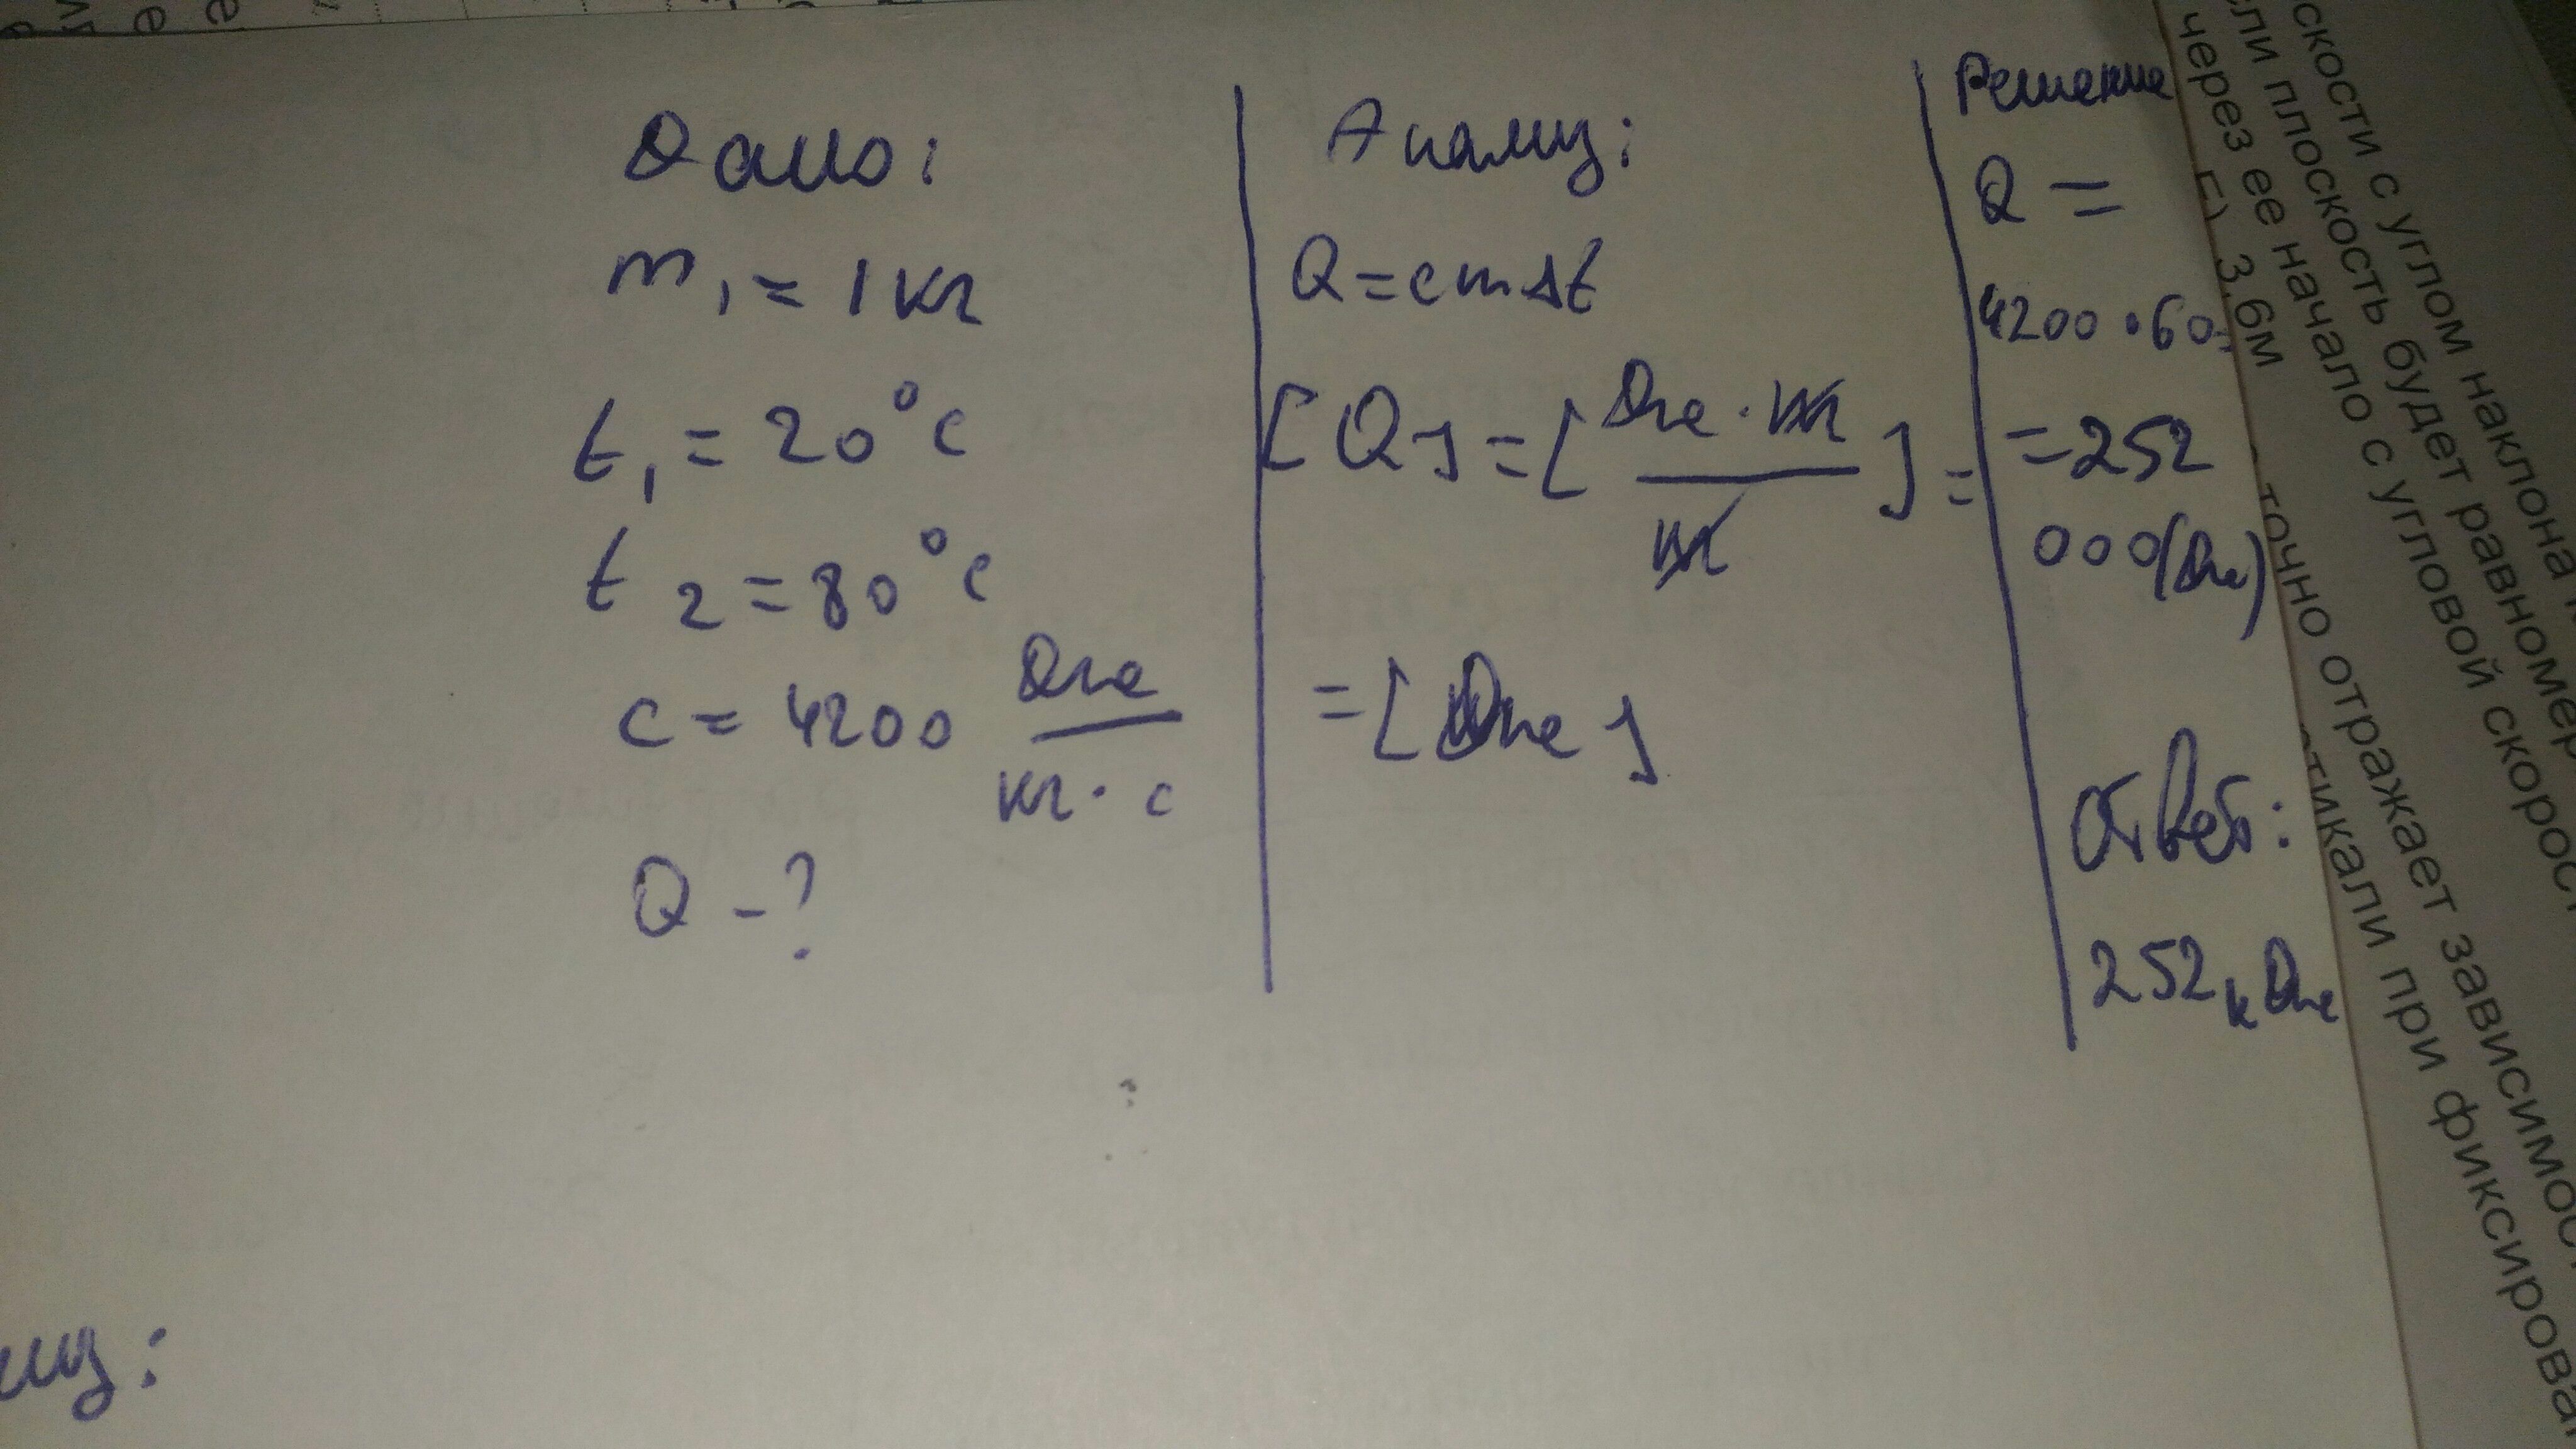 Дано:
m₁ = 1 кг
t₁ = 20°c
t₂ = 80°c
c = 4200 Дж/кг·c
Q - ?
Анализ:
Q = cmΔt
[Q] = [Дж·кг/кг] =
= [Дж]
Решение
Q =
4200·60
= 252
000(Дж)
Ответ:
252 кДж
скости с углом наклона
сли плоскость будет равномер
через ее начало с угловой скорос
3,6м
точно отражает зависимос
тикали при фиксирова